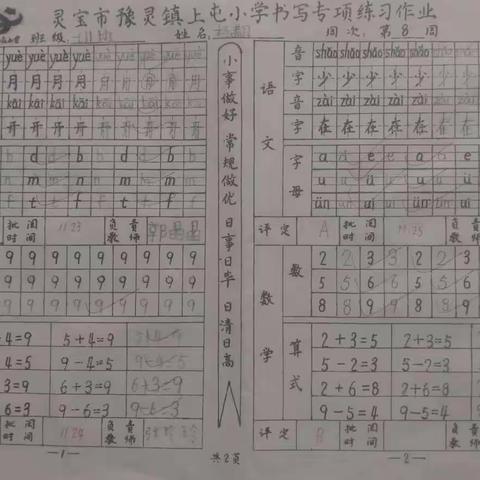 灵宝市豫灵镇上屯小学书写专项练习作业
班级 姓名 周次：第 8 周
yuè yuè yuè yuè yuè yuè yuè
月 月 月 月 月 月 月
kāi kāi kāi kāi kāi kāi kāi
开 开 开 开 开 开 开
b d d b d d b b
n m m n n m m n
f t t f f t t f
批阅时间 11.23 负责教师 郭晶晶
9 9 9 9 9 9 9 9 9
9 9 9 9 9 9 9 9 9
9 9 9 9 9 9 9 9 9
4=9 5+4=9
4=5 9-4=5 9-4=5
3=9 6+3=9 6+3=9
6=3 9-6=3 9-6=3
批阅时间 11.24 负责教师
-1-
小事做好 常规做优 日事日毕 日清日高
共2页
语文
音 shǎo shǎo shǎo shǎo shǎo
字 少 少 少 少 少 少
音 zài zài zài zài zài
字 在 在 在 在 在 在
字母
a a e e a a e
u u ü ü u u ü
ün un ui ün ün ui
评定 A 批阅时间 11.25
数学
数
2 2 3 3 2 2 3
5 5 6 6 5 5 6
8 8 9 9 8 8 9
算式
2+3=5 2+3=5
5-2=3 5-2=3
2+6=8 2+6=8
9-5=4 9-5=4
评定 批阅时间 负责教师
-2-